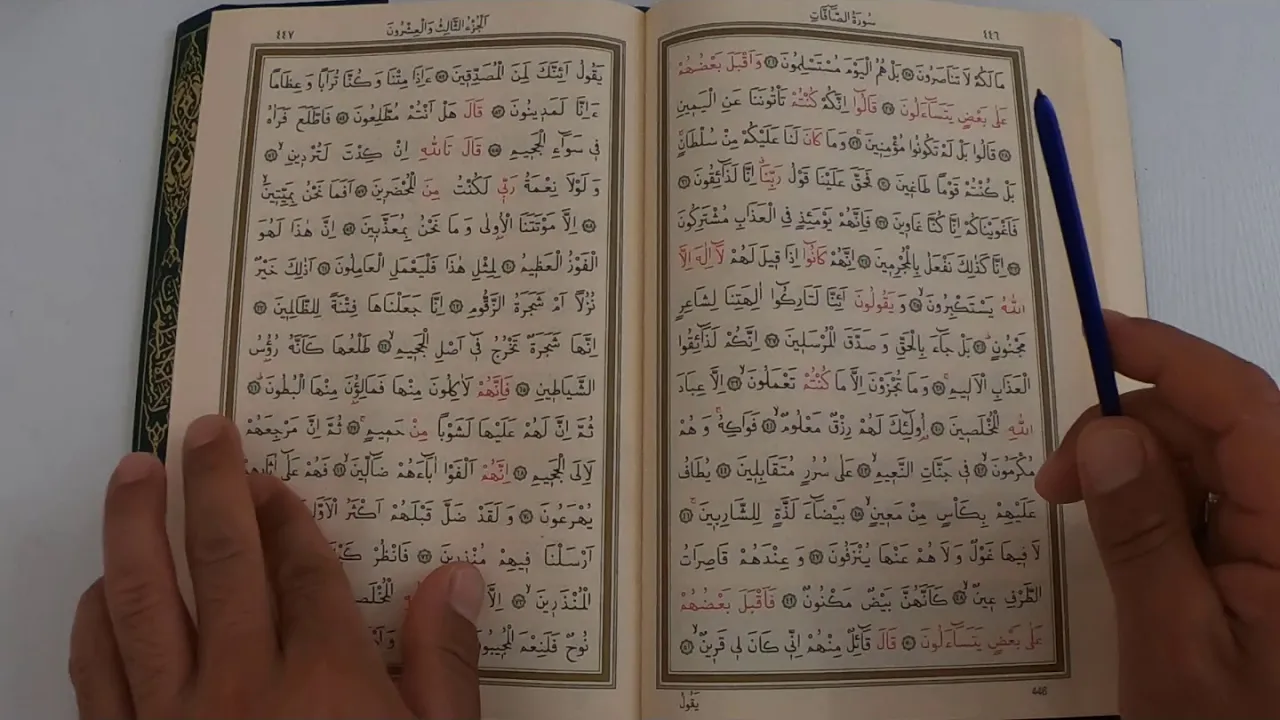 سُورَةُ الصَّافَّاتِ
٤٤٦
مَا لَكُمْ لَا تَنَاصَرُونَ ﴿٢٥﴾ بَلْ هُمُ الْيَوْمَ مُسْتَسْلِمُونَ ﴿٢٦﴾ وَاَقْبَلَ بَعْضُهُمْ
عَلٰى بَعْضٍ يَتَسَٓاءَلُونَ ﴿٢٧﴾ قَالُٓوا اِنَّكُمْ كُنْتُمْ تَأْتُونَنَا عَنِ الْيَمِينِ
﴿٢٨﴾ قَالُوا بَلْ لَمْ تَكُونُوا مُؤْمِنِينَ ﴿٢٩﴾ وَمَا كَانَ لَنَا عَلَيْكُمْ مِنْ سُلْطَانٍ
بَلْ كُنْتُمْ قَوْمًا طَاغِينَ ﴿٣٠﴾ فَحَقَّ عَلَيْنَا قَوْلُ رَبِّنَا اِنَّا لَذَٓائِقُونَ ﴿٣١﴾
فَاَغْوَيْنَاكُمْ اِنَّا كُنَّا غَاوِينَ ﴿٣٢﴾ فَاِنَّهُمْ يَوْمَئِذٍ فِي الْعَذَابِ مُشْتَرِكُونَ
﴿٣٣﴾ اِنَّا كَذٰلِكَ نَفْعَلُ بِالْمُجْرِمِينَ ﴿٣٤﴾ اِنَّهُمْ كَانُٓوا اِذَا قِيلَ لَهُمْ لَٓا اِلٰهَ اِلَّا
اللّٰهُ يَسْتَكْبِرُونَ ﴿٣٥﴾ وَ يَقُولُونَ اَئِنَّا لَتَارِكُٓوا اٰلِهَتِنَا لِشَاعِرٍ
مَجْنُونٍ ﴿٣٦﴾ بَلْ جَٓاءَ بِالْحَقِّ وَ صَدَّقَ الْمُرْسَلِينَ ﴿٣٧﴾ اِنَّكُمْ لَذَٓائِقُوا
الْعَذَابِ الْاَلِيمِ ﴿٣٨﴾ وَمَا تُجْزَوْنَ اِلَّا مَا كُنْتُمْ تَعْمَلُونَ ﴿٣٩﴾ اِلَّا عِبَادَ
اللّٰهِ الْمُخْلَصِينَ ﴿٤٠﴾ اُو۬لٰٓئِكَ لَهُمْ رِزْقٌ مَعْلُومٌ ﴿٤١﴾ فَوَاكِهُ وَ هُمْ
مُكْرَمُونَ ﴿٤٢﴾ فِي جَنَّاتِ النَّعِيمِ ﴿٤٣﴾ عَلٰى سُرُرٍ مُتَقَابِلِينَ ﴿٤٤﴾ يُطَافُ
عَلَيْهِمْ بِكَأْسٍ مِنْ مَعِينٍ ﴿٤٥﴾ بَيْضَٓاءَ لَذَّةٍ لِلشَّارِبِينَ ﴿٤٦﴾
لَا فِيهَا غَوْلٌ وَ لَا هُمْ عَنْهَا يُنْزَفُونَ ﴿٤٧﴾ وَ عِنْدَهُمْ قَاصِرَاتُ
الطَّرْفِ عِينٌ ﴿٤٨﴾ كَاَنَّهُنَّ بَيْضٌ مَكْنُونٌ ﴿٤٩﴾ فَاَقْبَلَ بَعْضُهُمْ
عَلٰى بَعْضٍ يَتَسَٓاءَلُونَ ﴿٥٠﴾ قَالَ قَٓائِلٌ مِنْهُمْ اِنِّي كَانَ لِي قَرِينٌ ﴿٥١﴾
يَقُولُ
446
اَلْجُزْءُ الثَّالِثُ وَالْعِشْرُونَ
٤٤٧
يَقُولُ اَئِنَّكَ لَمِنَ الْمُصَدِّقِينَ ﴿٥٢﴾ ءَاِذَا مِتْنَا وَ كُنَّا تُرَابًا وَ عِظَامًا
ءَاِنَّا لَمَدِينُونَ ﴿٥٣﴾ قَالَ هَلْ اَنْتُمْ مُطَّلِعُونَ ﴿٥٤﴾ فَاطَّلَعَ فَرَاٰهُ
فِي سَوَٓاءِ الْجَحِيمِ ﴿٥٥﴾ قَالَ تَاللّٰهِ اِنْ كِدْتَ لَتُرْدِينِ ﴿٥٦﴾
وَ لَوْلَا نِعْمَةُ رَبِّي لَكُنْتُ مِنَ الْمُحْضَرِينَ ﴿٥٧﴾ اَفَمَا نَحْنُ بِمَيِّتِينَ
﴿٥٨﴾ اِلَّا مَوْتَتَنَا الْاُو۫لٰى وَ مَا نَحْنُ بِمُعَذَّبِينَ ﴿٥٩﴾ اِنَّ هٰذَا لَهُوَ
الْفَوْزُ الْعَظِيمُ ﴿٦٠﴾ لِمِثْلِ هٰذَا فَلْيَعْمَلِ الْعَامِلُونَ ﴿٦١﴾ اَذٰلِكَ خَيْرٌ
نُزُلًا اَمْ شَجَرَةُ الزَّقُّومِ ﴿٦٢﴾ اِنَّا جَعَلْنَاهَا فِتْنَةً لِلظَّالِمِينَ ﴿٦٣﴾
اِنَّهَا شَجَرَةٌ تَخْرُجُ فِٓي اَصْلِ الْجَحِيمِ ﴿٦٤﴾ طَلْعُهَا كَاَنَّهُ رُؤُ۫سُ
الشَّيَاطِينِ ﴿٦٥﴾ فَاِنَّهُمْ لَاٰكِلُونَ مِنْهَا فَمَالِؤُ۫نَ مِنْهَا الْبُطُونَ ﴿٦٦﴾
ثُمَّ اِنَّ لَهُمْ عَلَيْهَا لَشَوْبًا مِنْ حَمِيمٍ ﴿٦٧﴾ ثُمَّ اِنَّ مَرْجِعَهُمْ
لَاِلَى الْجَحِيمِ ﴿٦٨﴾ اِنَّهُمْ اَلْفَوْا اٰبَٓاءَهُمْ ضَٓالِّينَ ﴿٦٩﴾ فَهُمْ عَلٰٓى اٰثَارِهِمْ
يُهْرَعُونَ ﴿٧٠﴾ وَ لَقَدْ ضَلَّ قَبْلَهُمْ اَكْثَرُ الْاَوَّلِ
اَرْسَلْنَا فِيهِمْ مُنْذِرِينَ ﴿٧٢﴾ فَانْظُرْ كَيْ
الْمُنْذَرِينَ ﴿٧٣﴾ اِلَّا الْمُخْلَصِ
نُوحٌ فَلَنِعْمَ الْمُجِيبُو